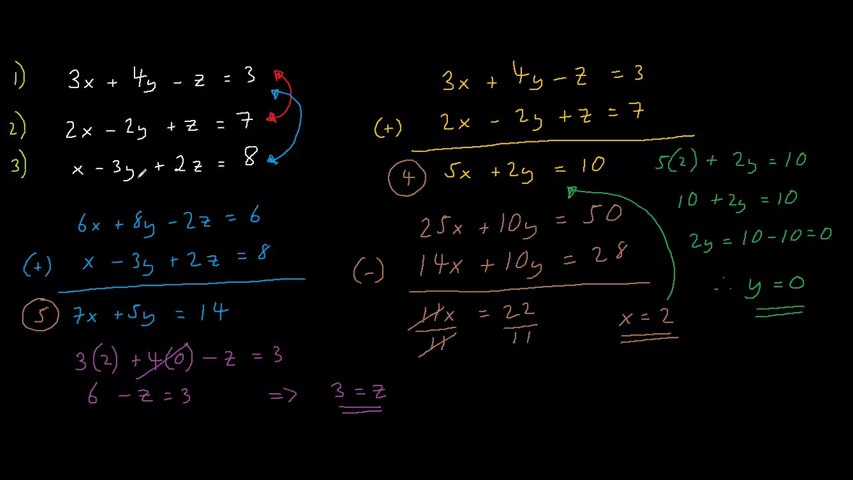 1) 3x + 4y - z = 3
2) 2x - 2y + z = 7
3) x - 3y + 2z = 8
6x + 8y - 2z = 6
(+) x - 3y + 2z = 8
5 7x + 5y = 14
3(2) + 4(0) - z = 3
6 - z = 3 => 3 = z
3x + 4y - z = 3
(+) 2x - 2y + z = 7
4 5x + 2y = 10
25x + 10y = 50
(-) 14x + 10y = 28
11x = 22
11 11
x = 2
5(2) + 2y = 10
10 + 2y = 10
2y = 10 - 10 = 0
∴ y = 0